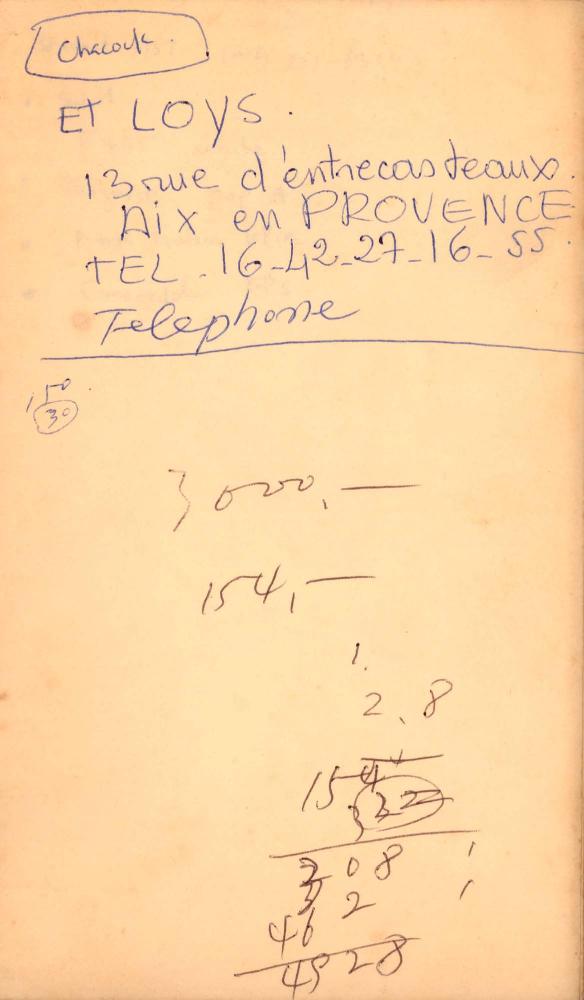 Chacok.
ET LOYS.
13 rue d'entrecasteaux.
AiX en PROVENCE
TEL. 16-42-27-16-55.
Telephone
150
30
3000,—
154,—
1.
2,8
154
32
308
2
46
4928